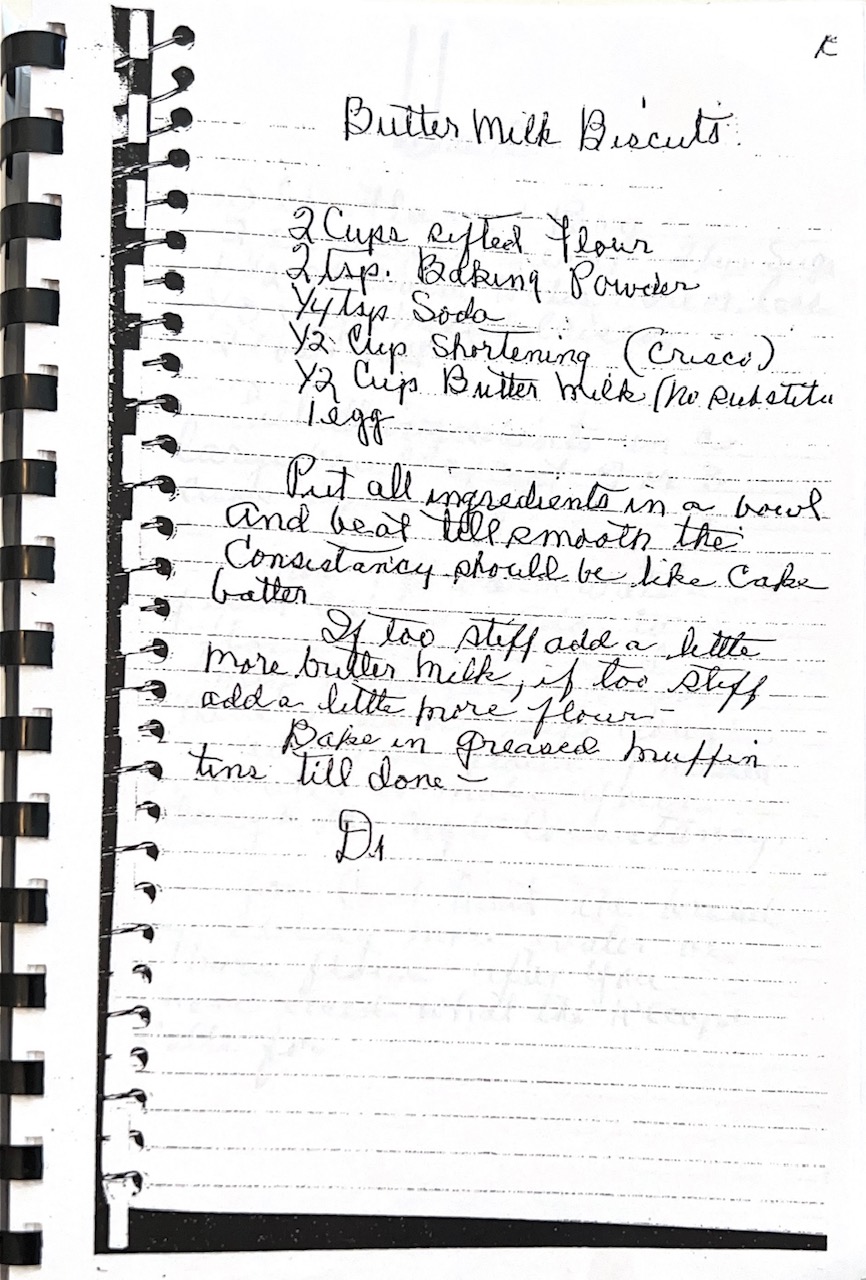 K
Butter Milk Biscuts.
2 Cups sifted flour
2 tsp. Baking Powder
1/4 tsp Soda
1/2 Cup Shortening (Crisco)
1/2 Cup Butter Milk (No substitu
1 egg
Put all ingredients in a bowl
and beat till smooth the
Consistancy should be like Cake
batter
If too stiff add a little
more butter milk, if too stiff
add a little more flour -
Bake in greased muffin
tins till done -